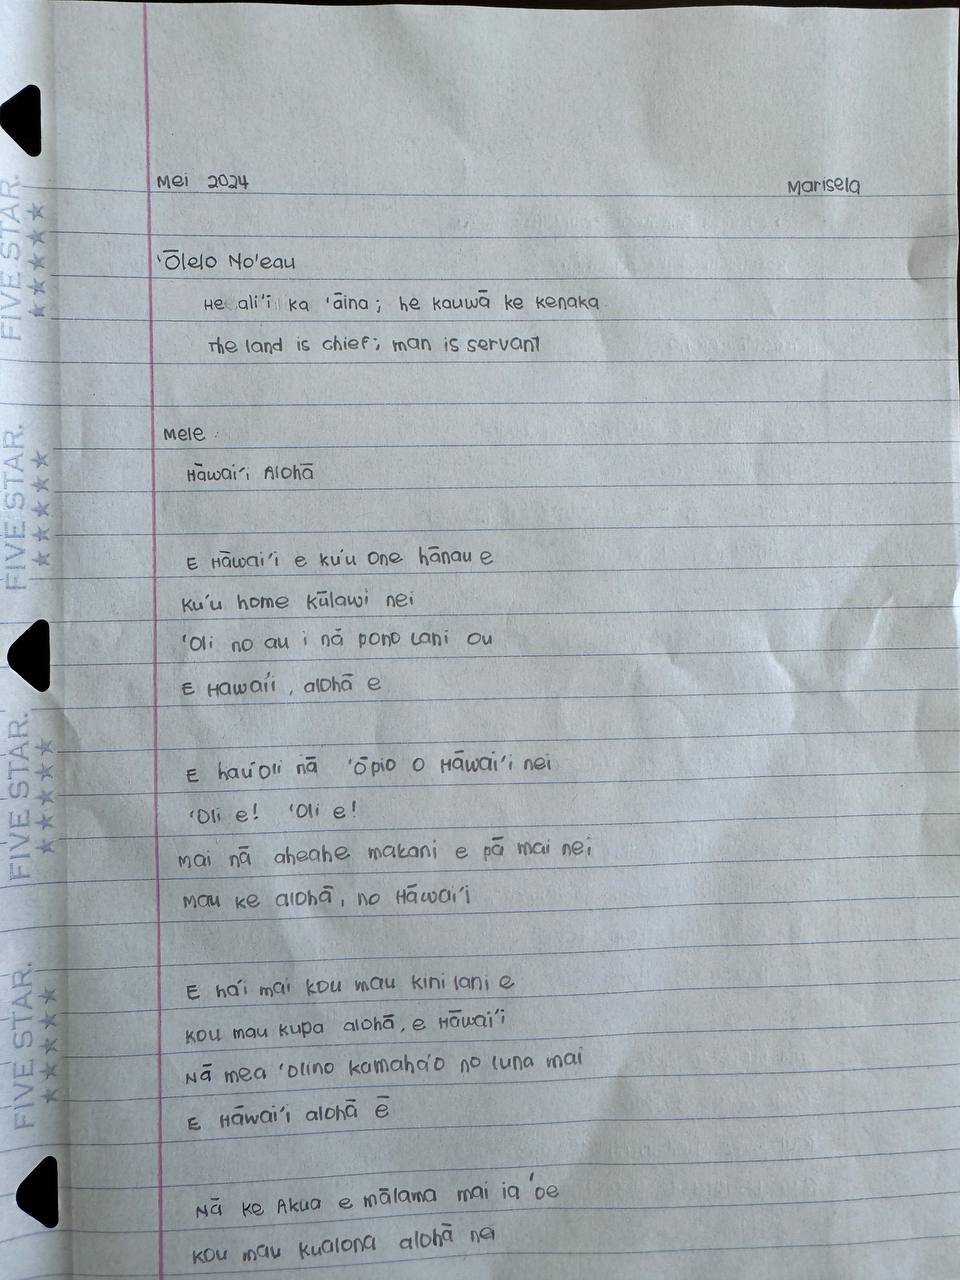 Mei 2024
Marisela
'Ōlelo No'eau
He ali'i ka 'āina; he kauwā ke kenaka
The land is chief; man is servant
Mele
Hāwai'i Alohā
E Hāwai'i e ku'u one hānau e
Ku'u home kūlawi nei
'Oli no au i nā pono lani ou
E Hawai'i, alohā e
E hau'oli nā 'ōpio o Hāwai'i nei
'Oli e! 'Oli e!
Mai nā aheahe makani e pā mai nei
Mau ke alohā, no Hāwai'i
E ha'i mai kou mau kini lani e
Kou mau kupa alohā, e Hāwai'i
Nā mea 'olino kamaha'o no luna mai
E Hāwai'i alohā ē
Nā ke Akua e mālama mai ia 'oe
Kou mau kualona alohā nei
FIVE STAR.
FIVE STAR.
FIVE STAR.
FIVE STAR.